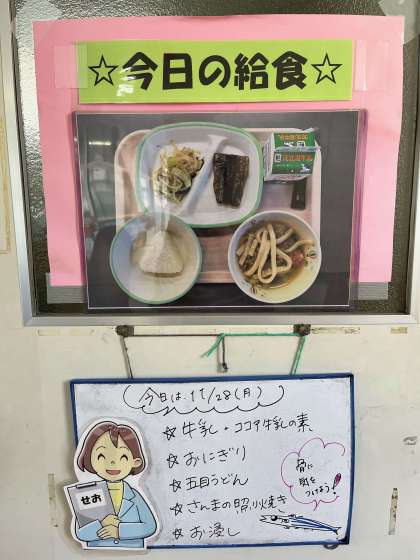 ☆今日の給食☆
今日は、11/28(月)
☆牛乳・ココア牛乳の素
☆おにぎり
☆五目うどん
☆さんまの照り焼き
☆お浸し
骨に
気を
つけよう!
せお